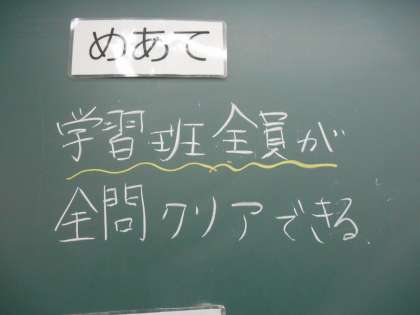 めあて
学習班全員が
全問クリアできる.